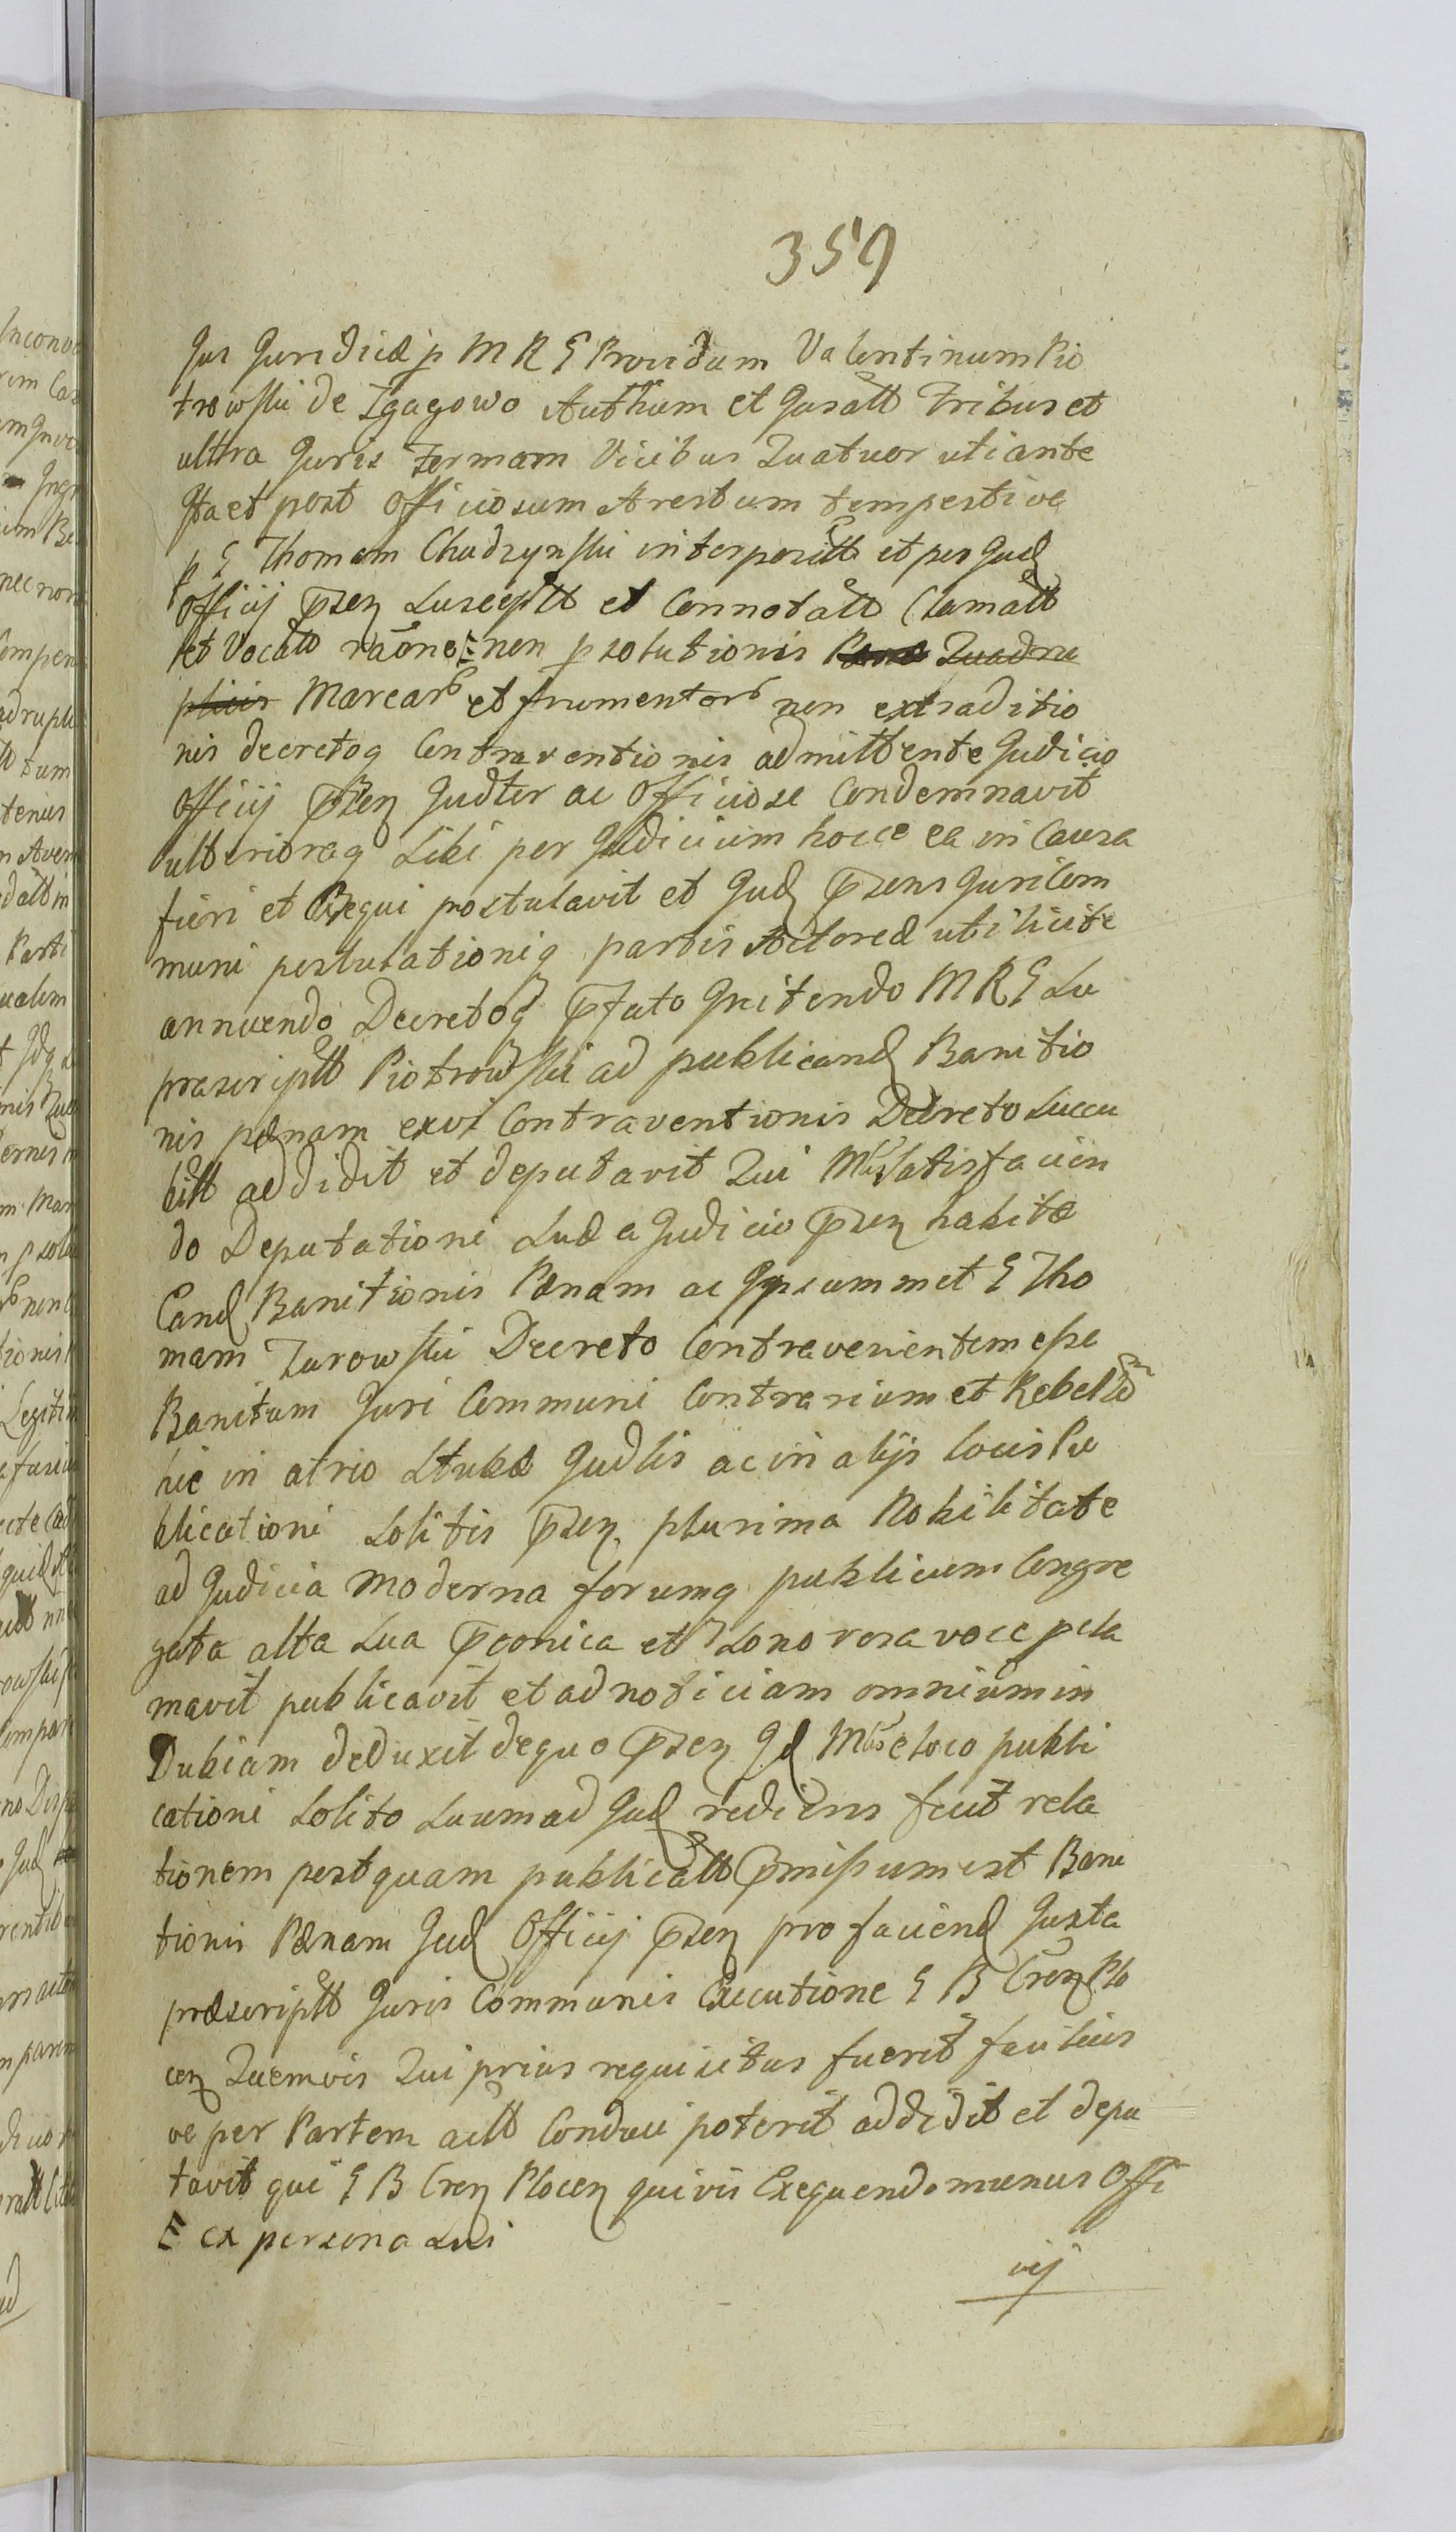 359
Jus Juridice p M R G Providum Valentinum Pio
trowski de Zgagowo Authum et Juratt Tribus et
ultra Juris Formam Vicibus Quatuor uti ante
Ita et post Officiosum Arestum tempestive
p G Thomam Chudzynski interposittt et per Jud
Officij Psen Susceptt et Connotatt Clamatt
et Vocatt raone E non psolutionis
Marcarb et frumentorb non extraditio
nis decretoq Contraventionis admittente Judicio
Officij Psen Judter ac Officiose Condemnavit
ulterioraq Sibi per Judicium hocce ea in Causa
fieri et Exequi postulavit et Jud Psens Juri Com
muni postulationiq partis Actoreæ uti licite
annuendo Decretoq Pfato Initendo M R G Su
prascriptt Piotrowski ad publicand Banitio
nis pænam ex vi Contraventionis Decreto Succu
bitt addidit et deputavit Qui Mtus Satisfacien
do Deputationi Suæ a Judicio Psen habitæ
Eand Banitionis Pænam ac Ipsummet G Tho
mam Zurowski Decreto Contravenientem esse
Banitum Juri Communi Contrarium et Rebellem
hic in atrio Stubæ Judlis ac in alijs locis Pu
blicationi Solitis Psen plurima Nobilitate
ad Judicia moderna forumq publicum Congre
gata alta Sua Pconica et Sonorosa voce pcla
mavit publicavit et ad noticiam omnium in
Dubiam deduxit de quo Psen Id Mtus e loco publi
cationi Solito Suum ad Jud rediens fecit rela
tionem post quam publicatt Pmissum est Bani
tionis Pænam Jud Officij Psen pro faciend Juxta
præscriptt Juris Communis Executione G B Cren Plo
cen Quemvis Qui prius requisitus fuerit facilius
ve per Partem actt Conduci poterit addidit et depu
tavit qui G B Cren Plocen quivis Exequendo munus Offi
E ex persona Sui
cij